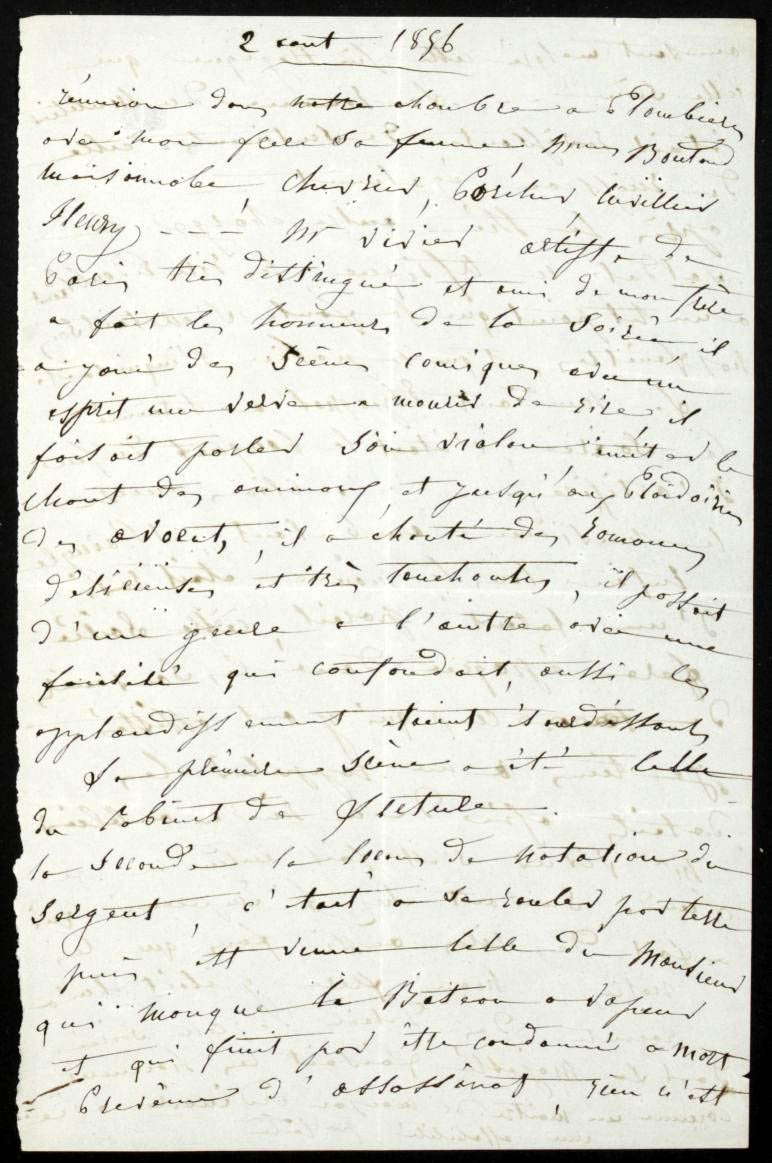 2 aout 1856
réunion dans notre chambre a Plombières
avec mon frère sa femme Mmes Boutard
Maisonnobe, Chevrier, Porcher Cuvillier
Fleury - - - - Mr Vivier artiste de
Paris très distingué et ami de mon frère
a fait les honneurs de la Soirée, il
a joué des scènes comiques avec un
esprit une verve a mourir de rire, il
faisait parler son violon imiter le
chant des animaux, et jusqu'aux Plaidoiries
des avocats, il a chanté des romances
délicieuses et très touchantes, il passait
d'un genre a l'autre avec une
facilité qui confondait, aussi les
applaudissement etaient étourdissants
La première scène a été celle
du Cabinet de
la seconde la leçon de natation du
Sergent, c'etait a se rouler par terre
puis est venue celle du Monsieur
qui manque le Bateau a vapeur
et qui finit par être condamné a mort
Prévenu d'assassinat, rien n'est